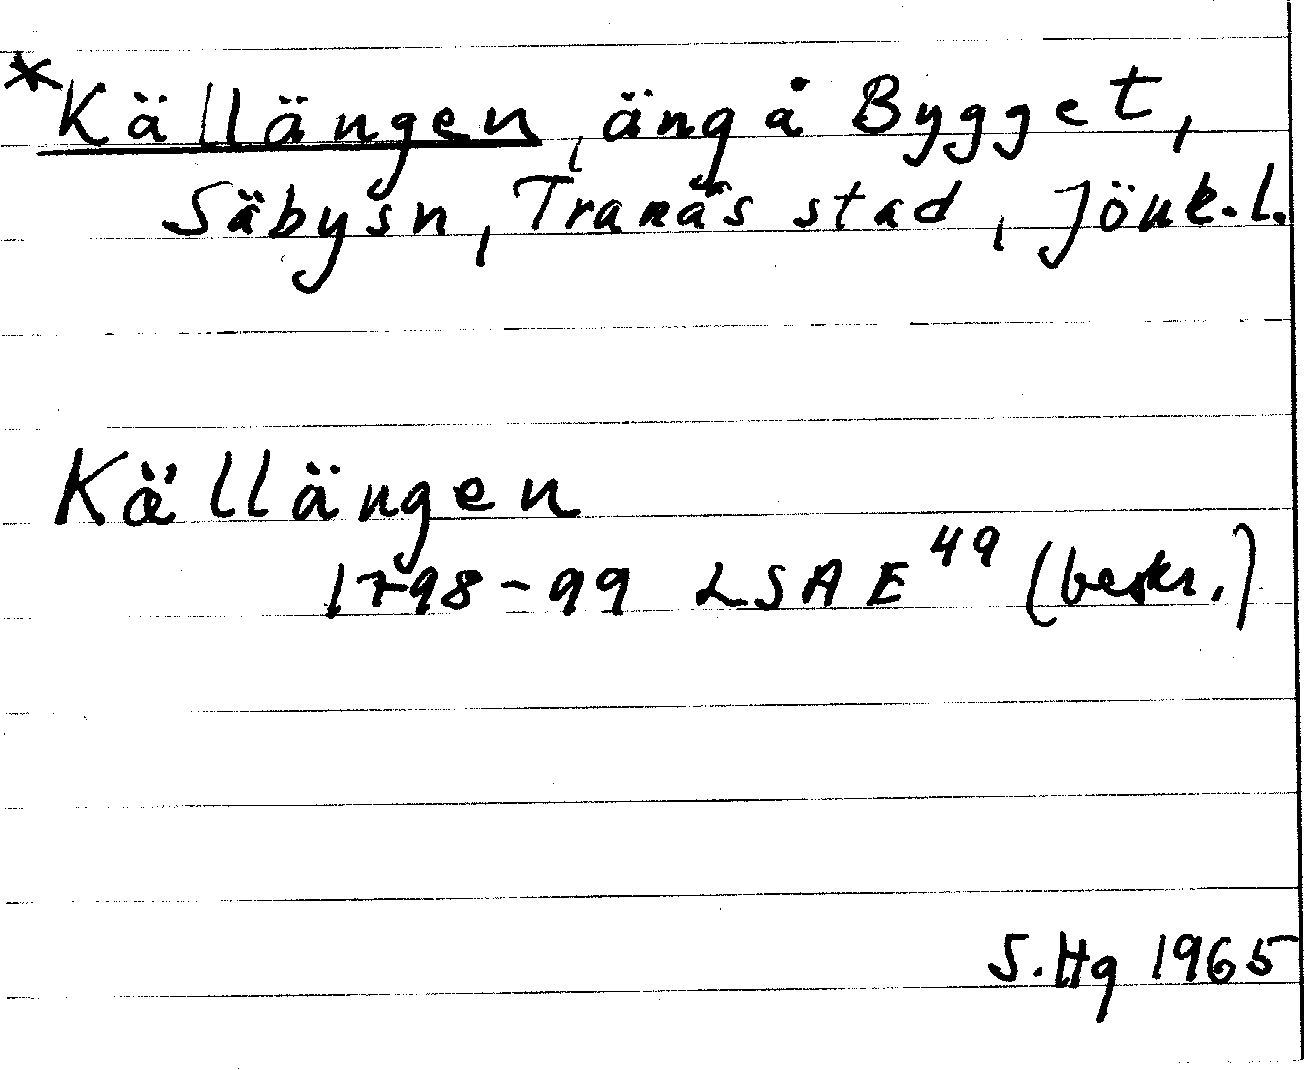 *Källängen, äng å Bygget,
Säbysn, Tranås stad, Jönk.l.
Källängen
1798-99 LSA E 49 (beskr.)
S.Hg 1965